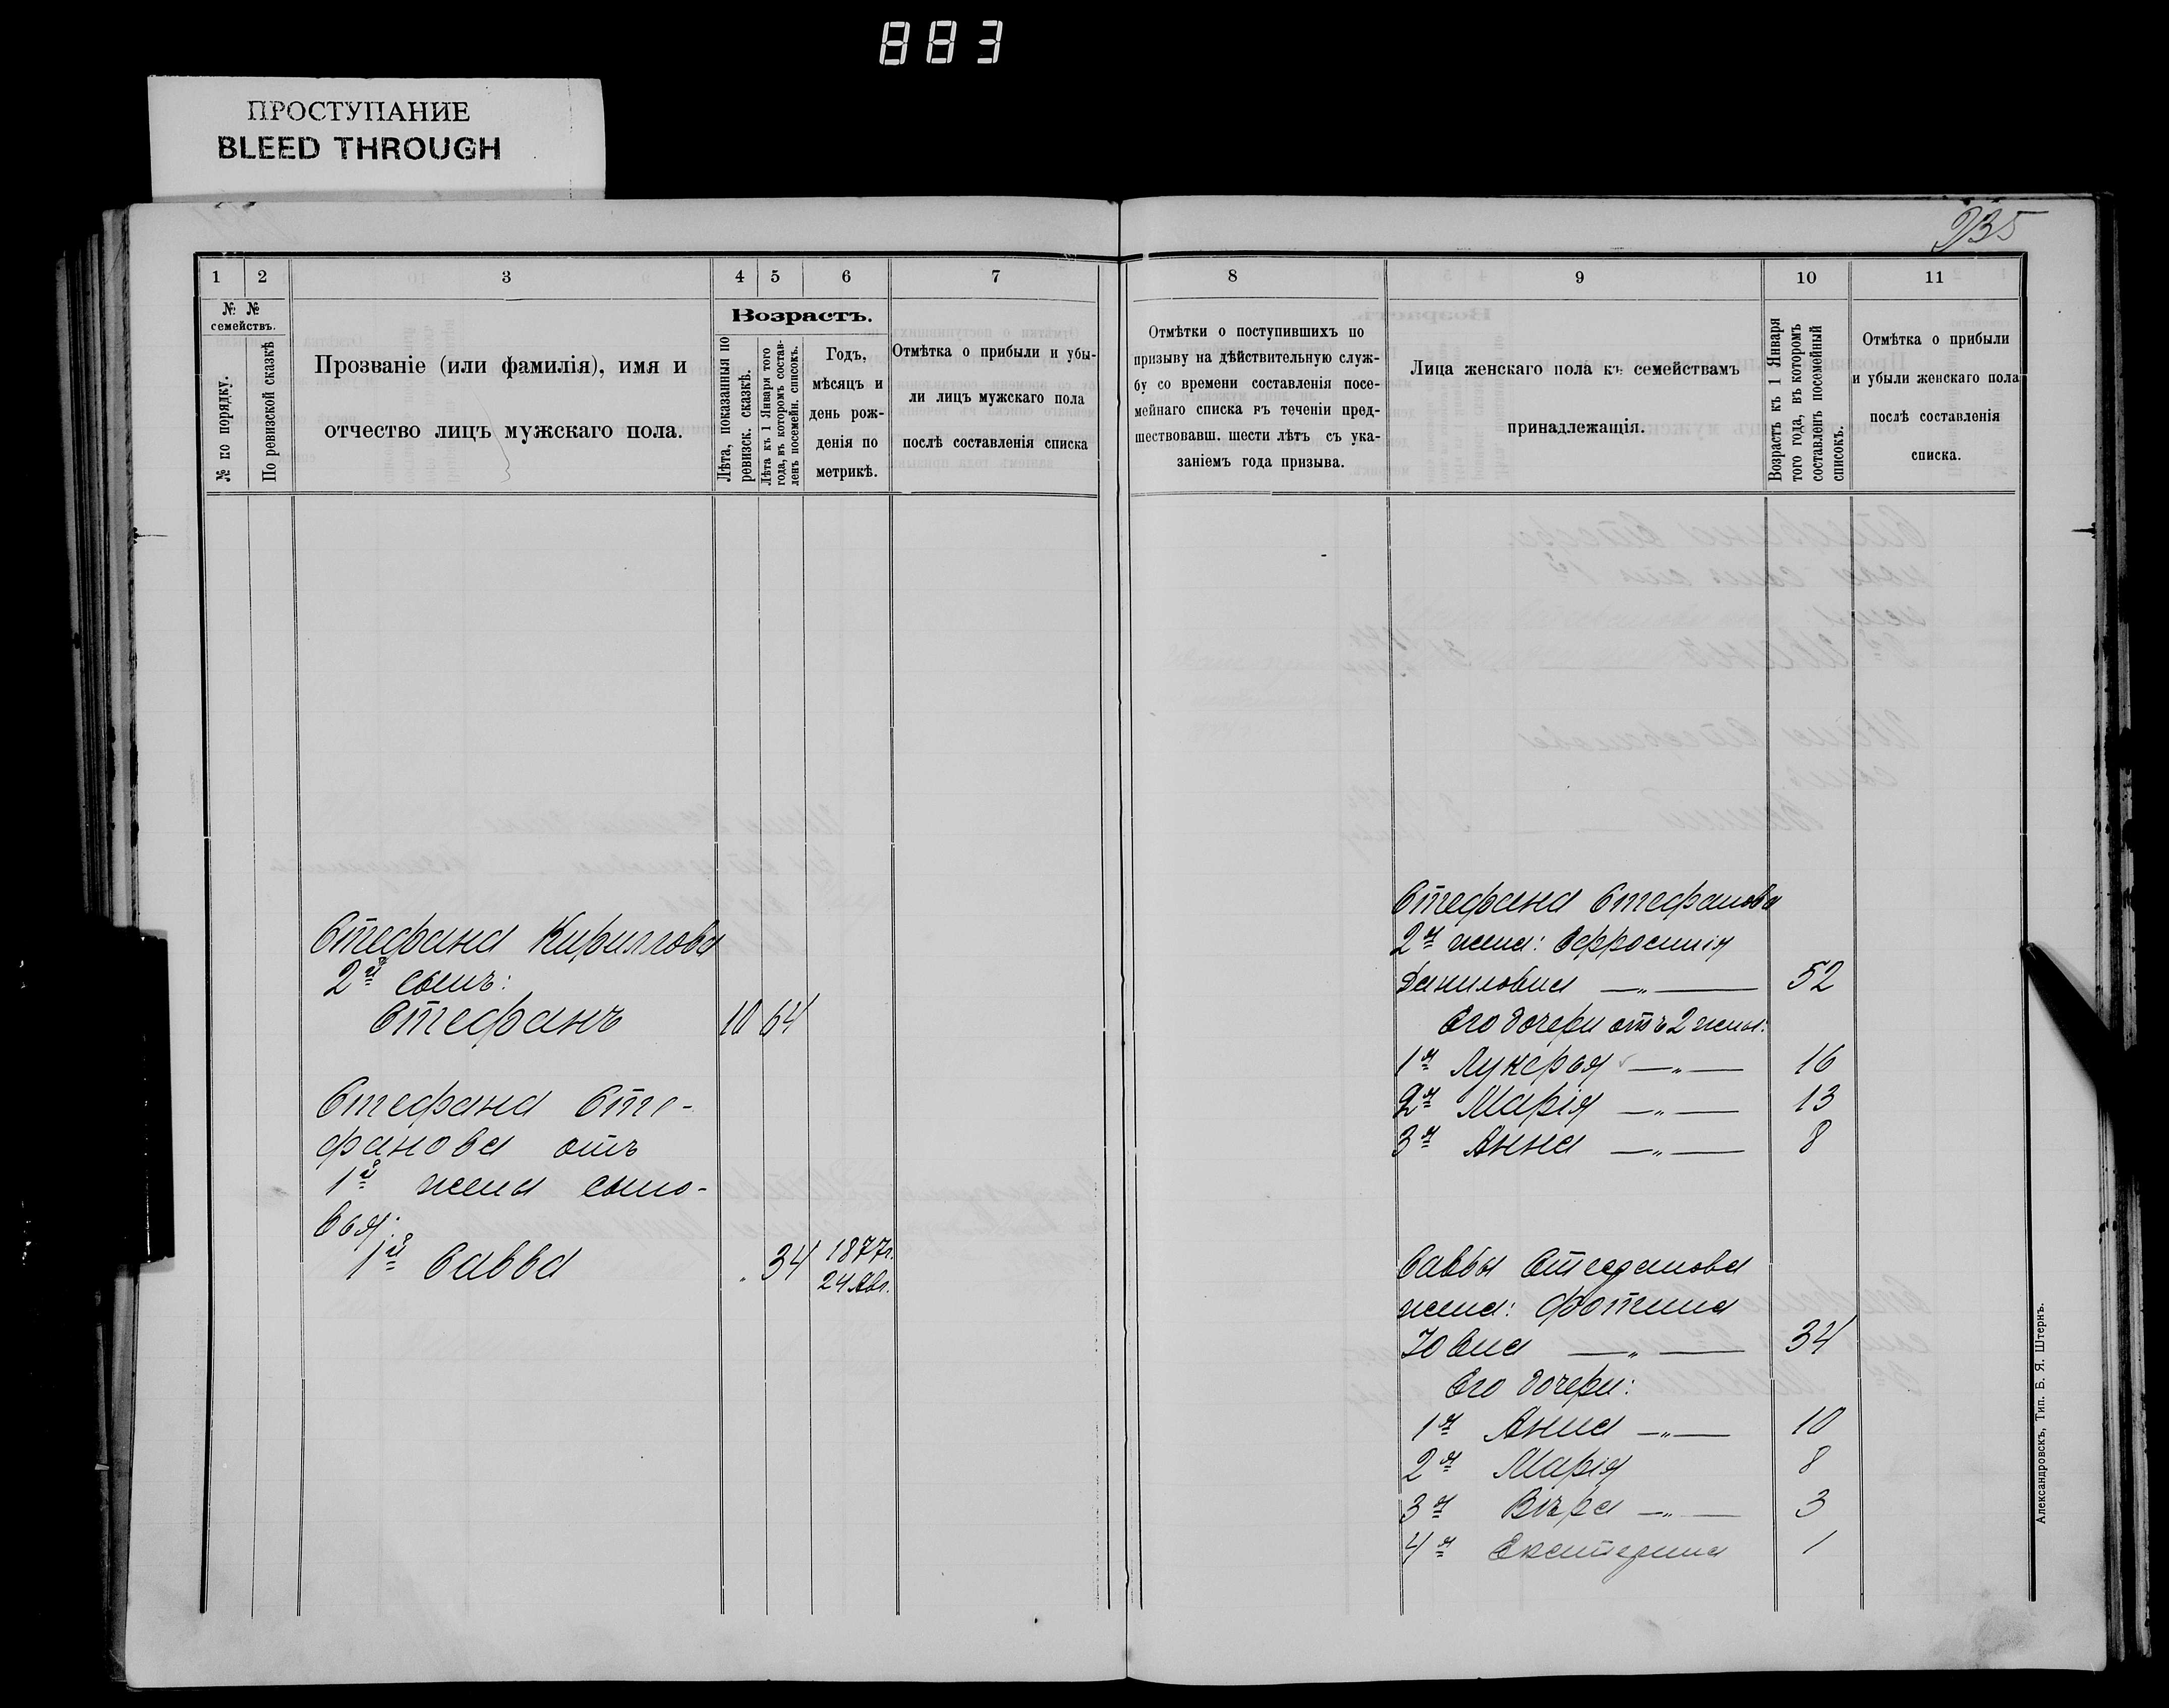 883
ПРОСТУПАНИЕ
BLEED THROUGH
1 2 3 4 5 6 7
№ № семействъ.
№ по порядку.
По ревизской сказкѣ
Прозваніе (или фамилія), имя и
отчество лицъ мужскаго пола.
Возрастъ.
Лѣта, показанныя по
ревизск. сказкѣ.
Лѣта къ 1 Января того
года, въ которомъ состав-
ленъ посемейн. списокъ.
Годъ,
мѣсяцъ и
день рож-
денія по
метрикѣ.
Отмѣтка о прибыли и убы-
ли лицъ мужскаго пола
послѣ составленія списка
Стефана Кириллова
2й сынъ:
Стефанъ 10 64
Стефана Сте-
фанова отъ
1й жены сыно-
вья:
1й Савва 34 1877г.
24 Авг.
335
8 9 10 11
Отмѣтки о поступившихъ по
призыву на дѣйствительную служ-
бу со времени составленія посе-
мейнаго списка въ теченіи пред-
шествовавш. шести лѣтъ съ ука-
заніемъ года призыва.
Лица женскаго пола къ семействамъ
принадлежащія.
Возрастъ къ 1 Января
того года, въ которомъ
составленъ посемейный
списокъ.
Отмѣтка о прибыли
и убыли женскаго пола
послѣ составленія
списка.
Стефана Стефанова
2я жена: Ефросинія
Данилова —„— 52
Его дочери отъ 2 жены:
1я Лукерья —„— 16
2я Марія —„— 13
3я Анна —„— 8
Саввы Стефанова
жена: Фотина
—„— 34
Его дочери:
1я Анна —„— 10
2я Марія 8
3я Вѣра —„— 3
4я Екатерина 1
Александровскъ, Тип. Б. Я. Штернъ.